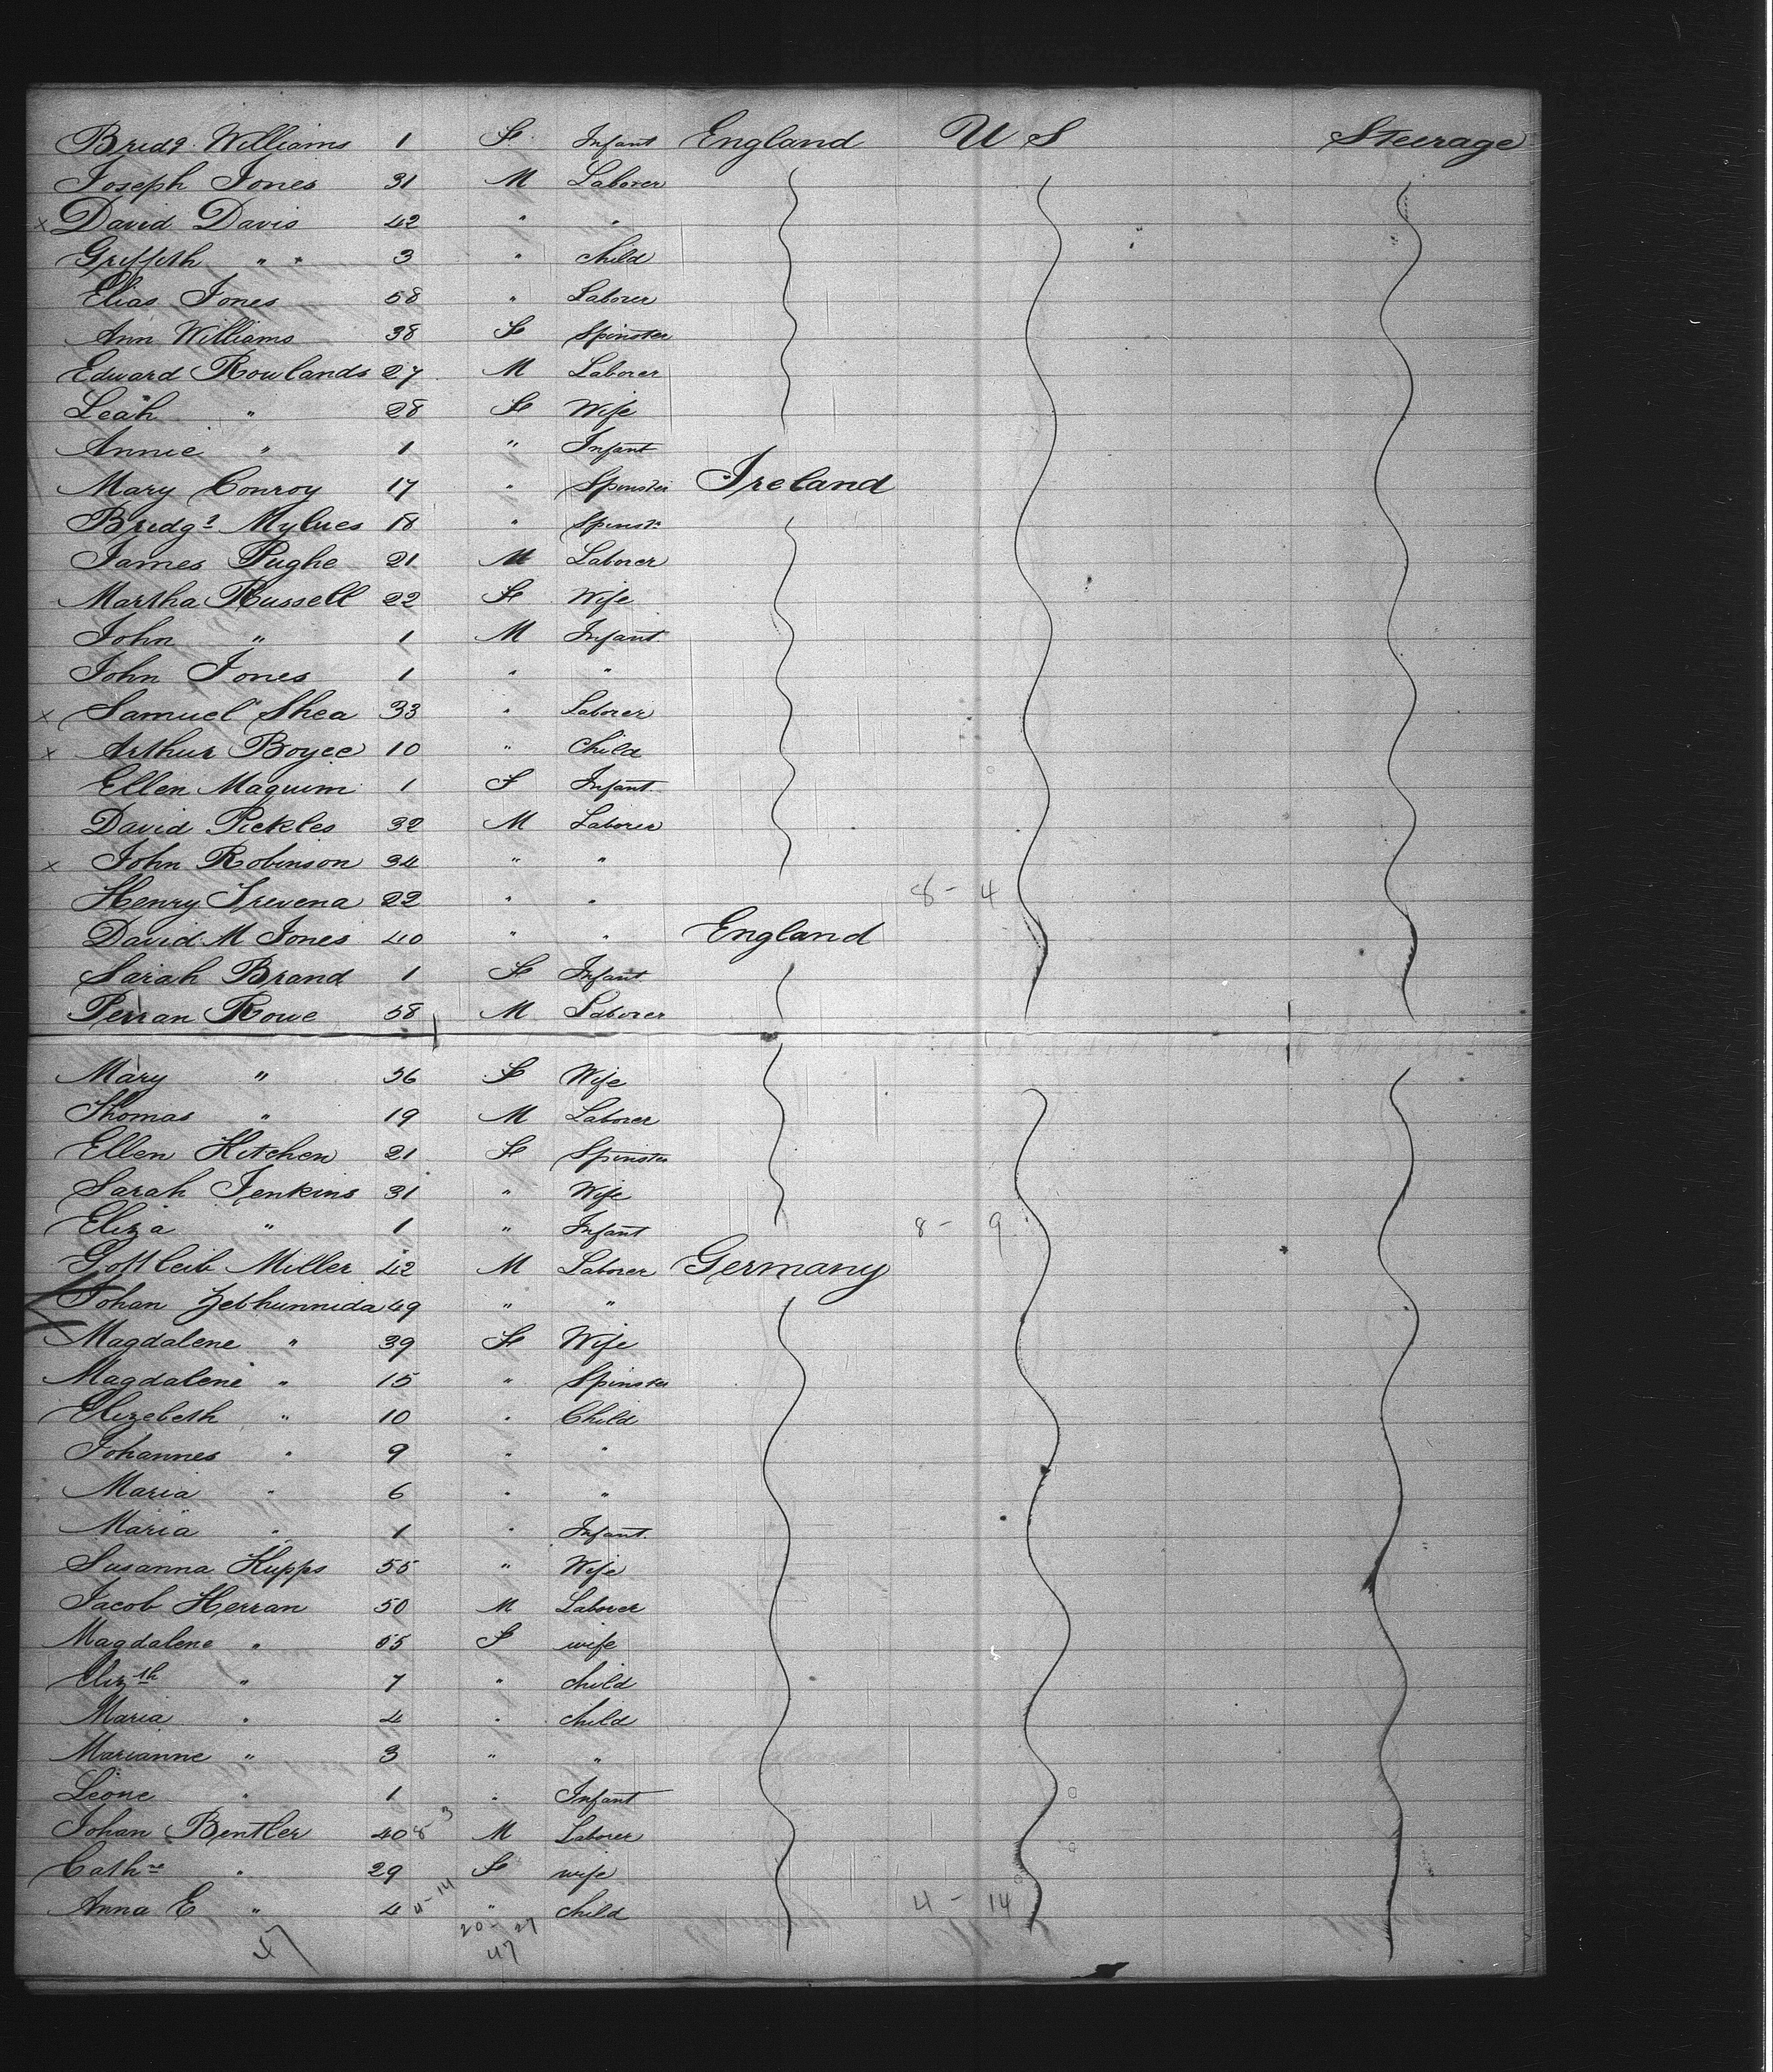 Bridg. Williams 1 Fe Infant England U S Steerage
Joseph Jones 31 M Laborer
x David Davis 42 " "
Griffith " 3 " Child
Elias Jones 58 " Laborer
Ann Williams 38 Fe Spinster
Edward Rowlands 27 M Laborer
Leah " 28 Fe Wife
Annie " 1 " Infant
Mary Conroy 17 " Spinster Ireland
Bridgt 18 " Spinstr
James Pughe 21 M Laborer
Martha Russell 22 Fe Wife
John " 1 M Infant
John Jones 1 " "
x Samuel Shea 33 " Laborer
x Arthur Boyce 10 " Child
Ellen 1 F Infant
David Pickles 32 M Laborer
x John Robinson 34 " "
Henry Trevena 22 " " 8 - 4
David M Jones 40 " " England
Sarah Brand 1 Fe Infant
Perran Rowe 58 M Laborer
Mary " 56 Fe Wife
Thomas " 19 M Laborer
Ellen Hitchen 21 Fe Spinster
Sarah Jenkins 31 " Wife
Eliza " 1 " Infant 8 - 9
Gottleib Miller 42 M Laborer Germany
Johan 49 " "
Magdalene " 39 Fe Wife
Magdalene " 15 " Spinster
Elizebeth " 10 " Child
Johannes " 9 " "
Maria " 6 " "
Maria " 1 " Infant
Susanna Hupps 55 " Wife
Jacob Herran 50 M Laborer
Magdalene " 55 F wife
Elizth " 7 " child
Maria " 4 " child
Marianne " 3 " "
Leone " 1 " Infant
Johan Bentler 40 8 - 3 M Laborer
Cathne " 29 Fe wife
Anna E " 4 4 - 14 " child 4 - 14
20 - 27
47 47